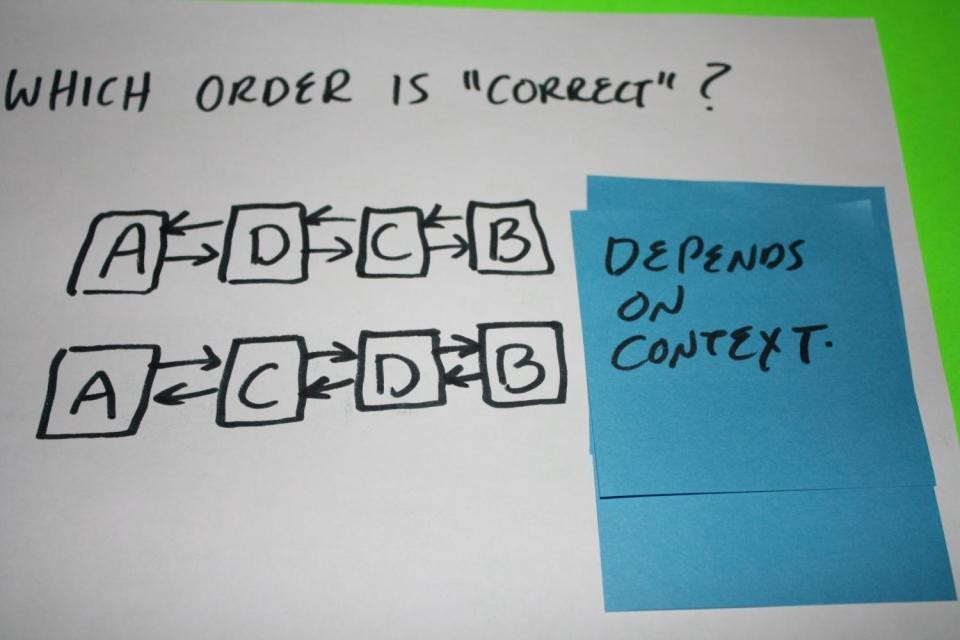 WHICH ORDER IS "CORRECT"?
A D C B
A C D B
DEPENDS
ON
CONTEXT.